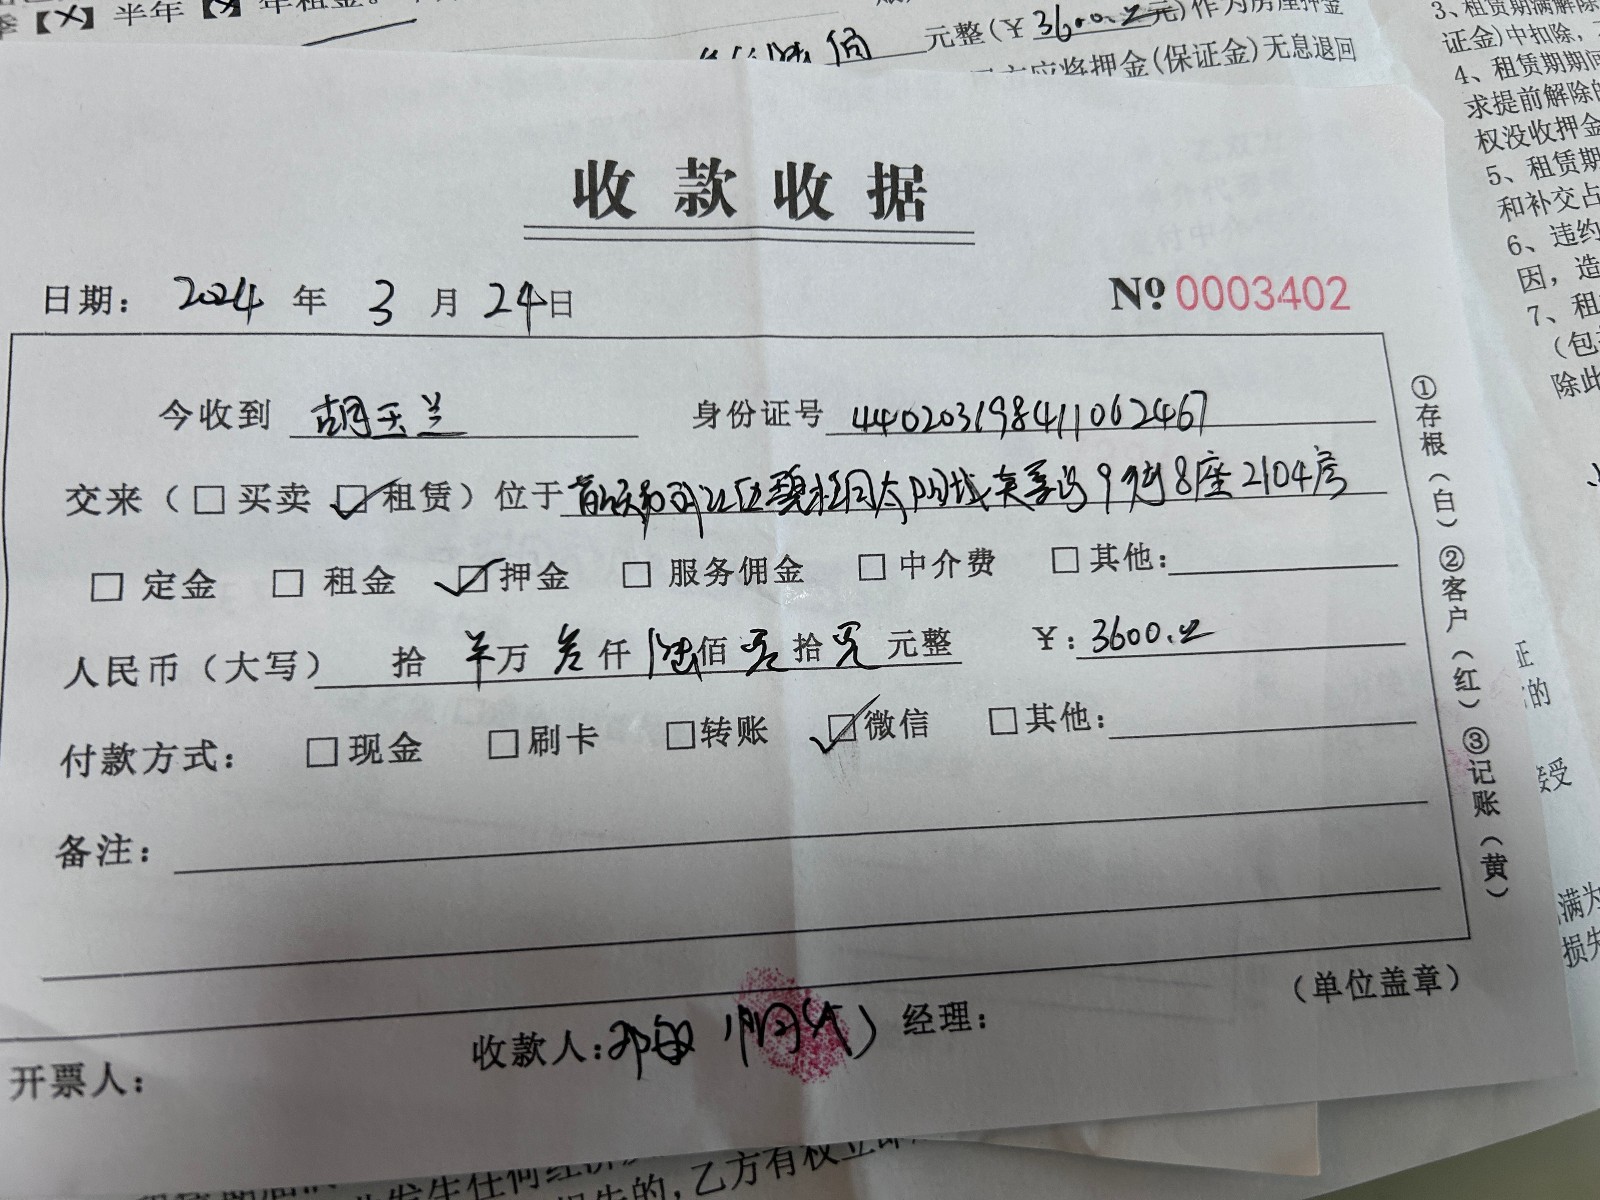 季【X】半年【X】年租金。
佰 元整(￥3600.00元)作为房屋押金
应将押金(保证金)无息退回
3、租赁期满解除
证金)中扣除，
4、租赁期期间
求提前解除
权没收押金
5、租赁期
和补交占
6、违约
因，造
7、租
(包
除此
收款收据
日期： 2024 年 3 月 24日
№ 0003402
今收到 胡玉兰 身份证号 440203198411062467
交来（□买卖 ☑租赁）位于 9街8座2104房
□ 定金 □ 租金 ☑押金 □ 服务佣金 □ 中介费 □ 其他：
人民币（大写） 拾 万 叁仟 陆佰 零拾 元整 ￥：3600.00
付款方式： □ 现金 □ 刷卡 □ 转账 ☑微信 □ 其他：
备注：
①存根（白）②客户（红）③记账（黄）
（单位盖章）
收款人： 经理：
开票人：
证
的
接受
满为
损失
发生任何经济
损失的，乙方有权立即